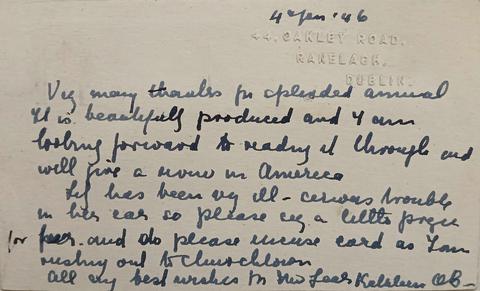 4 Jan '46
44. OAKLEY ROAD.
RANELAGH.
DUBLIN.
Vy many thanks for splendid annual
It is beautifully produced and I am
looking forward to reading it through and
will give a review in America
has been vy ill - serious trouble
in her ear so please a little prayer
for her. and do please excuse card as I am
rushing out to Churchtown
All my best wishes for New Year Kathleen